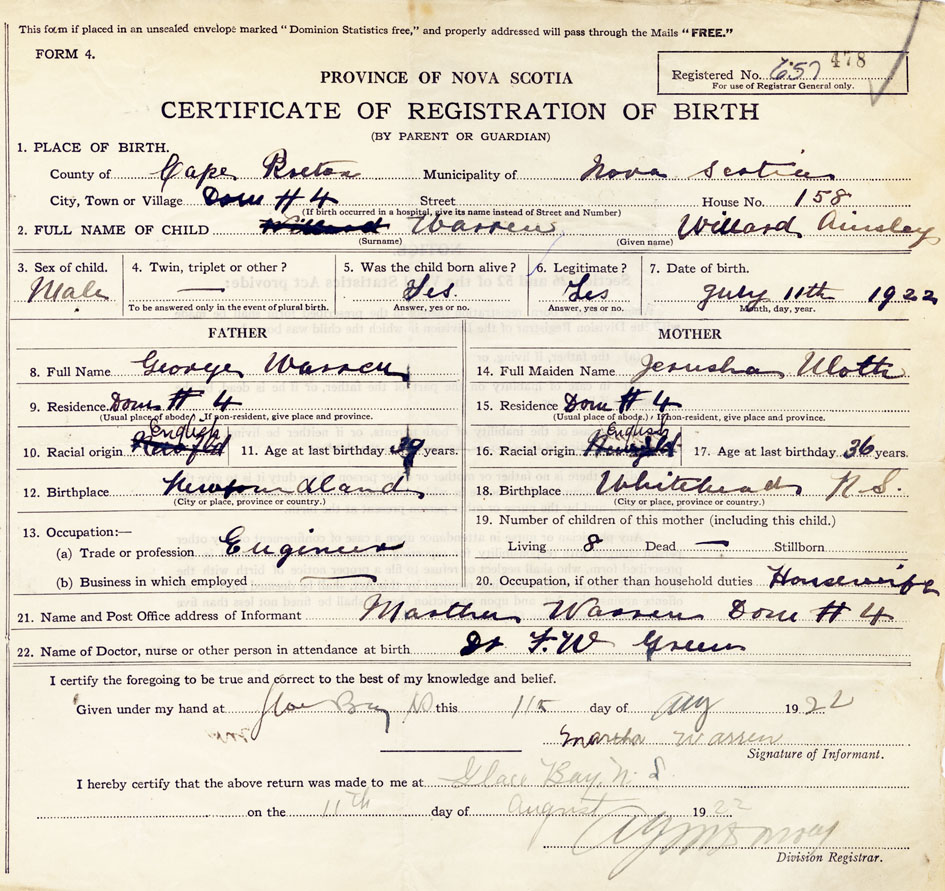 This form if placed in an unsealed envelope marked "Dominion Statistics free," and properly addressed will pass through the Mails "FREE."
FORM 4.
478
Registered No. 657
For use of Registrar General only.
PROVINCE OF NOVA SCOTIA
CERTIFICATE OF REGISTRATION OF BIRTH
(BY PARENT OR GUARDIAN)
1. PLACE OF BIRTH.
County of Cape Breton Municipality of Nova Scotia
City, Town or Village Dom # 4 Street House No. 158
(If birth occurred in a hospital, give its name instead of Street and Number)
2. FULL NAME OF CHILD Willard Warren Willard Ainsley
(Surname) (Given name)
3. Sex of child. 4. Twin, triplet or other? 5. Was the child born alive? 6. Legitimate? 7. Date of birth.
Male — Yes. Yes July 11th 1922
To be answered only in the event of plural birth. Answer, yes or no. Answer, yes or no. Month, day, year.
FATHER MOTHER
8. Full Name George Warren 14. Full Maiden Name Jerusha Uloth
9. Residence Dom # 4 15. Residence Dom # 4
(Usual place of abode.) If non-resident, give place and province. (Usual place of abode.) If non-resident, give place and province.
English English
10. Racial origin Newfld 11. Age at last birthday 39 years. 16. Racial origin Newfld 17. Age at last birthday 36 years.
12. Birthplace Newfoundland 18. Birthplace Whitehead N.S.
(City or place, province or country.) (City or place, province or country.)
19. Number of children of this mother (including this child.)
13. Occupation:—
(a) Trade or profession Engineer Living 8 Dead — Stillborn
(b) Business in which employed — 20. Occupation, if other than household duties Housewife
21. Name and Post Office address of Informant Martha Warren Dom # 4
22. Name of Doctor, nurse or other person in attendance at birth Dr F.W Green
I certify the foregoing to be true and correct to the best of my knowledge and belief.
Given under my hand at Glace Bay NS this 11th day of Aug 1922
Martha Warren
Signature of Informant.
I hereby certify that the above return was made to me at Glace Bay, N.S.
on the 11th day of August 1922
Division Registrar.